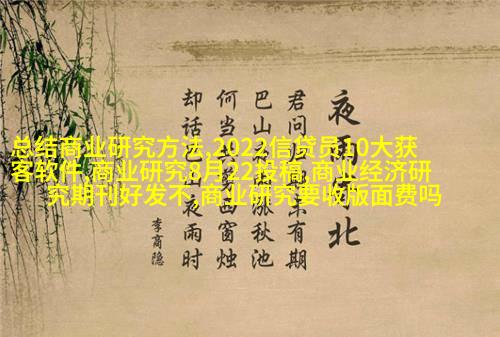 总结商业研究方法,2022信贷员10大获
客软件,商业研究8月22投稿,商业经济研
究期刊好发不,商业研究要收版面费吗
夜雨北
君问有期
巴山涨秋池
何当西窗烛
却话巴山夜雨时
李商隐